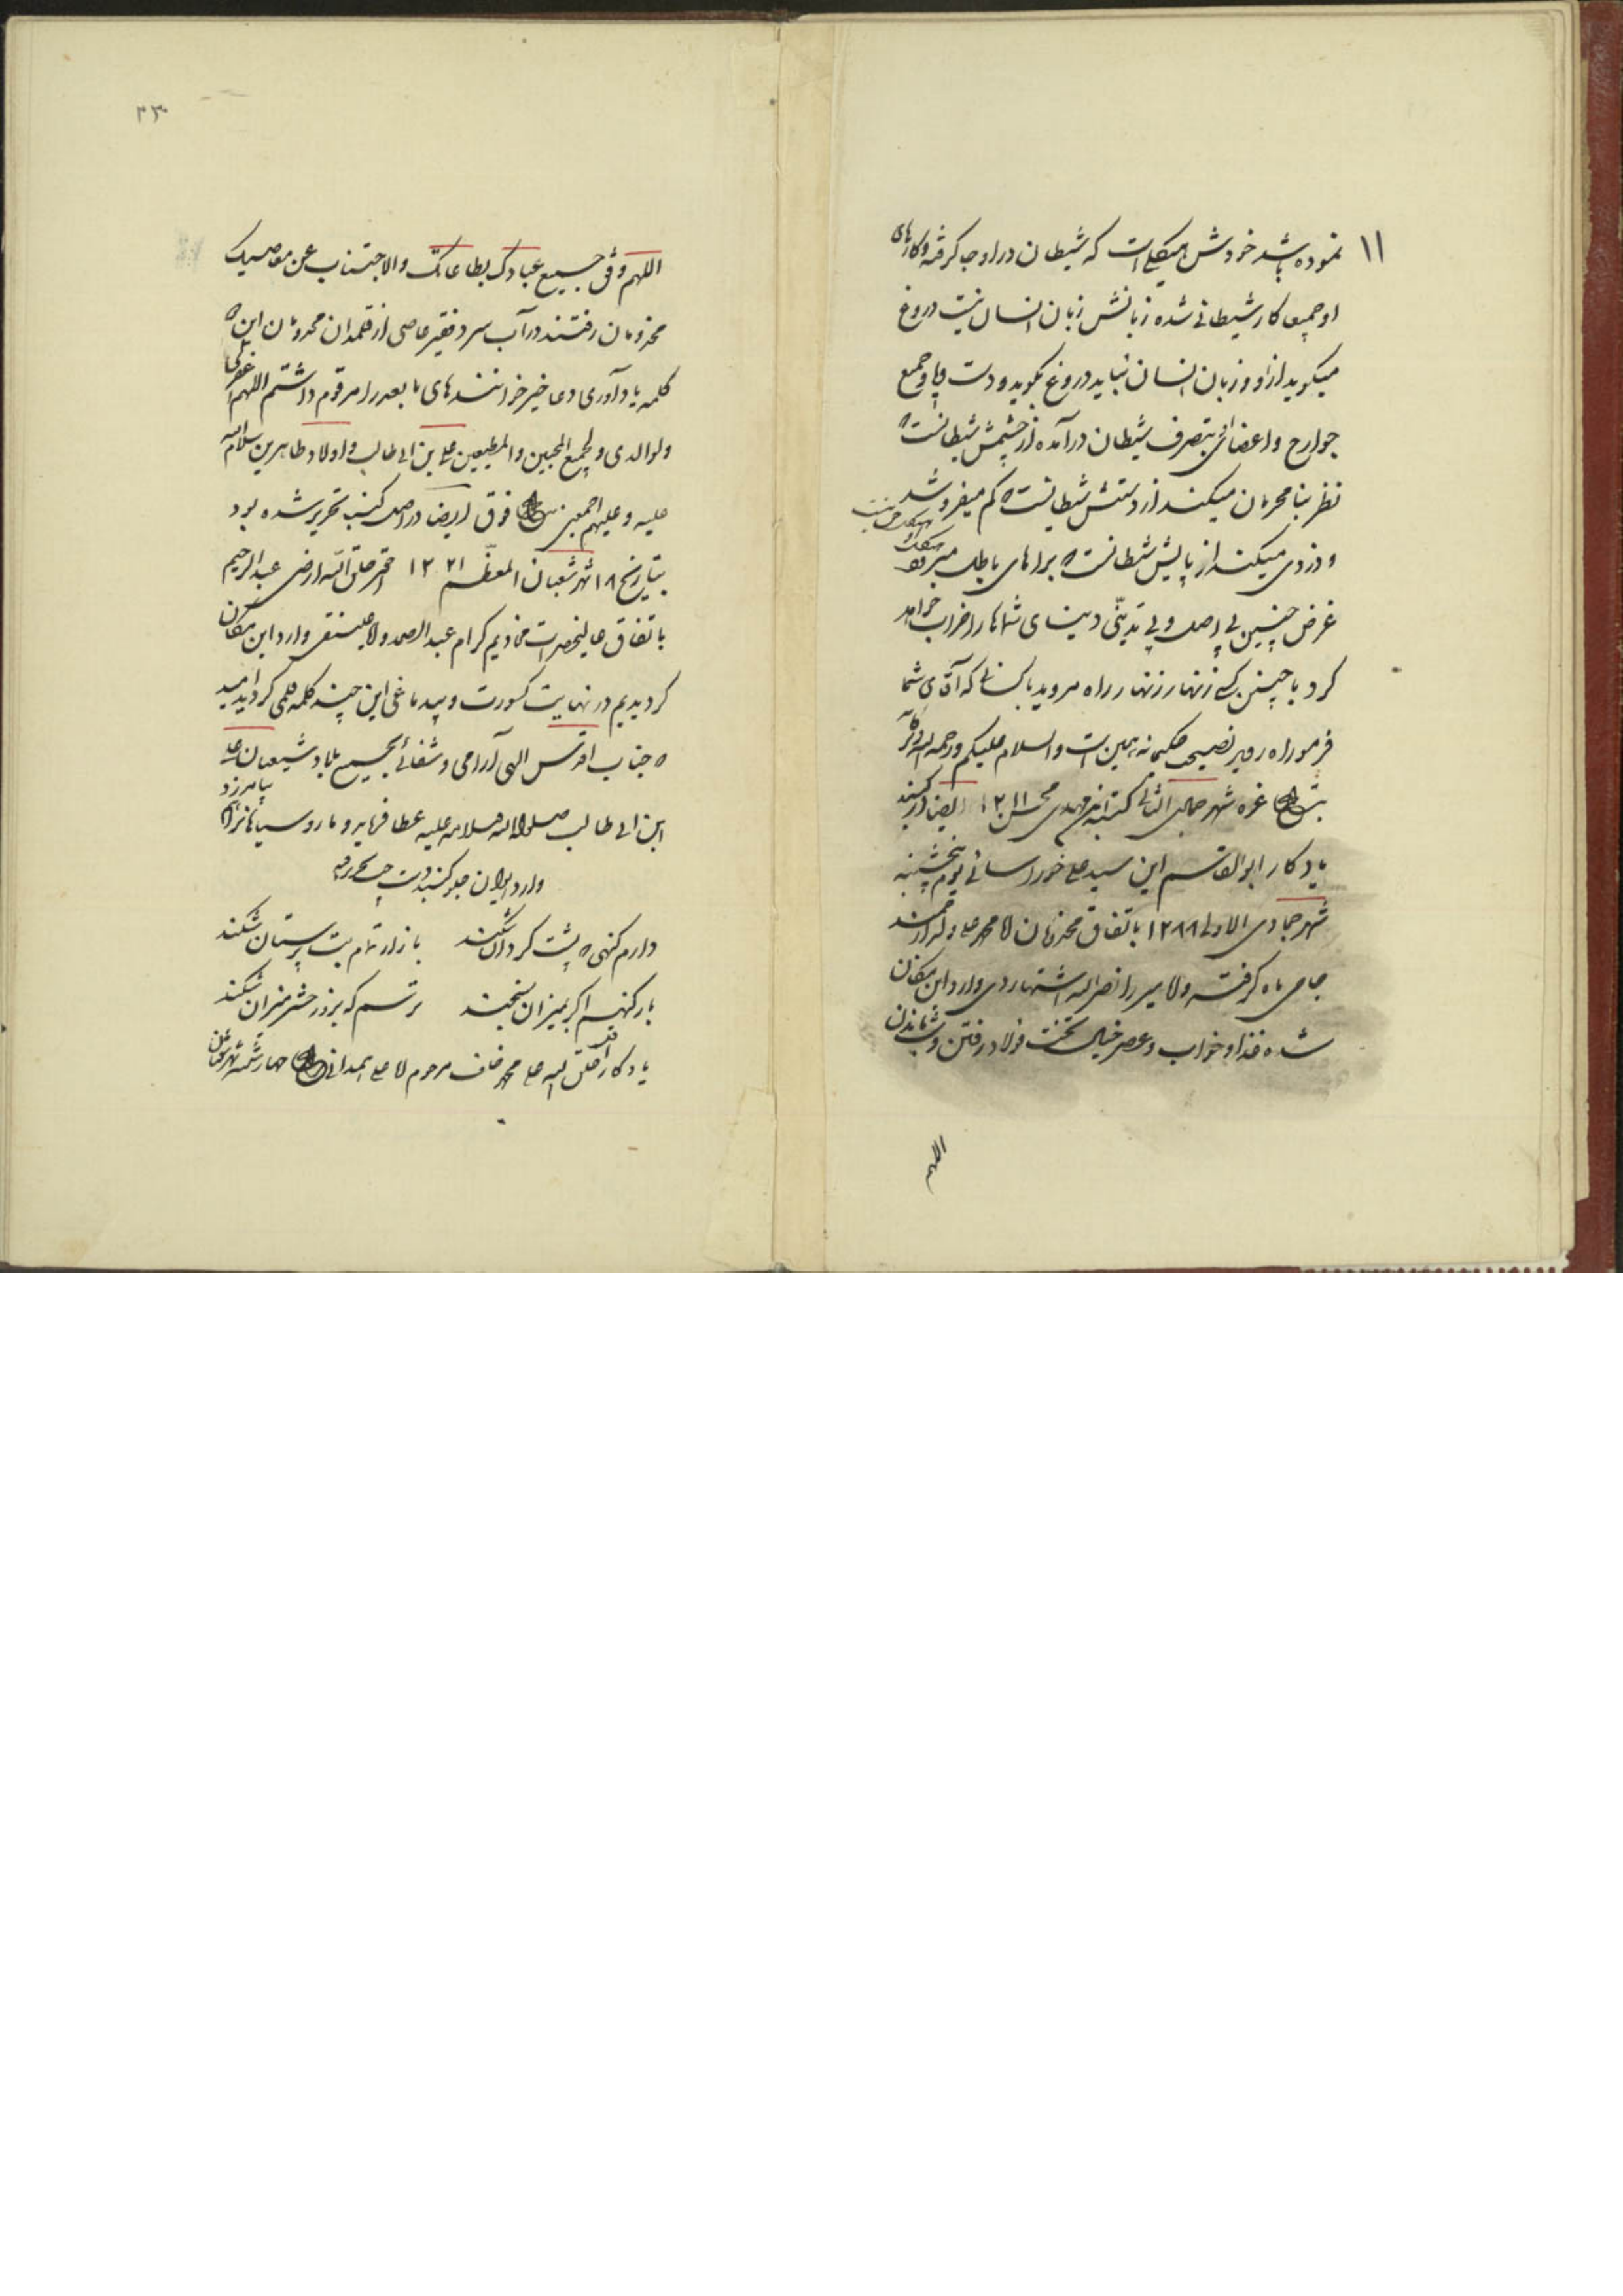 ۱۱
نموده باشد خودش هیکلی است که شیطان در او جا کرفته و کارهای
او جمیعا کار شیطانی شده زبانش زبان انسان نیست دروغ
میکوید از او و زبان انسان نباید دروغ بکوید و دست و پا و جمیع
جوارح و اعضائی بتصرف شیطان در آمده از چشمش شیطانست ه
نظر بنا محرمان میکند از دستش شیطانست ه کم میفروشد
و دزدی میکند از پایش شیطانست ه براهای باطل میرود
غرض چنین بی اصل و بی تدینّی دینهای شماها را خراب خواهد
کرد با چنین کسی زنهار زنهار راه مروید با کسانی که آقای شما
فرمود راه روید نصیحت حکیمانه همین است والسلام علیکم ورحمة الله وبرکاته
غره شهر جمادی الثانی کتبه مهدی ۱۲۱۱ ایضا در کنبد
یادکار ابوالقاسم ابن سید علی خوراسانی یوم پنجشنبه
شهر جمادی الاولی ۱۲۸۸ باتفاق مخدومان ملا محمد علی
جامی ماه کرفته و لا میرزا نصرالله اشتهاردی وارد این مکان
شده غذا و خواب و عصر خیال تخت فولاد رفتن و شام ماندن
اللهم
۳۳
اللهم وفق جمیع عبادک بطاعاتک والاجتناب عن معاصیک
مخدومان رفتند در آب سرد فقیر عاصی از قلمدان مخدومان این ه
کلمه یادآوری دعا خیر خوانندهای ما بعد را مرقوم داشتم اللهم اغفر لی
ولوالدی و لجمیع المحبین والمطیعین علی بن ابی طالب و اولاد طاهرین سلام الله
علیه و علیهم اجمعین فوق ایضا در اصل کنبد تحریر شده بود
بتاریخ ۱۸ شهر شعبان المعظم ۱۲۲۱ احقر خلق الله ارضی عبد الرحیم
باتفاق عالیحضرات مخادیم کرام عبد الصمد و لا علینقی وارد این مکان
کردیدیم در نهایت کسورت و بیدماغی این چند کلمه قلمی کردید امید
ه جناب اقدس الهی آرامی و شفائی بجمیع بلاد شیعیان علی
ابن ابی طالب صلوات الله و سلامه علیه عطا فرماید و ما روسیاهانرا بیامرزد
وارد ایوان جلو کنبد دست چپ محرره
دارم کنهی ه پشت کردان شکند    بازار تمام بت پرستان شکند
بار کنهم اکر بمیزان سنجند    ترسم که بروز حشر میزان شکند
یادکار اقل خلق الله علی محمد خلف مرحوم لا علی همدانی چهارشنبه شهر شعبان